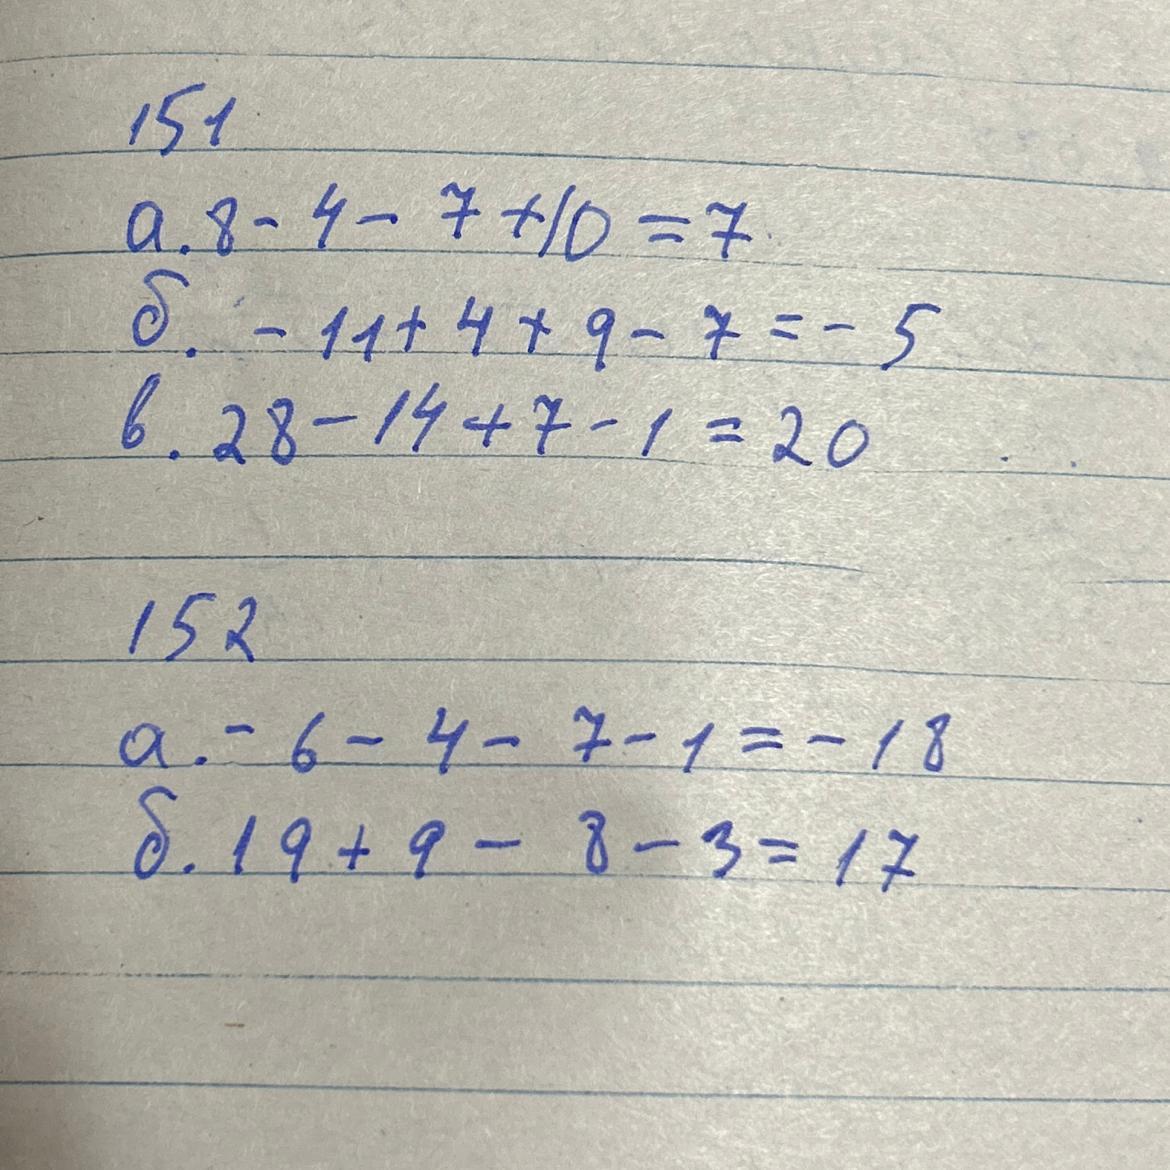 151
а. 8 - 4 - 7 + 10 = 7
б. - 11 + 4 + 9 - 7 = - 5
в. 28 - 14 + 7 - 1 = 20
152
а. - 6 - 4 - 7 - 1 = - 18
б. 19 + 9 - 8 - 3 = 17